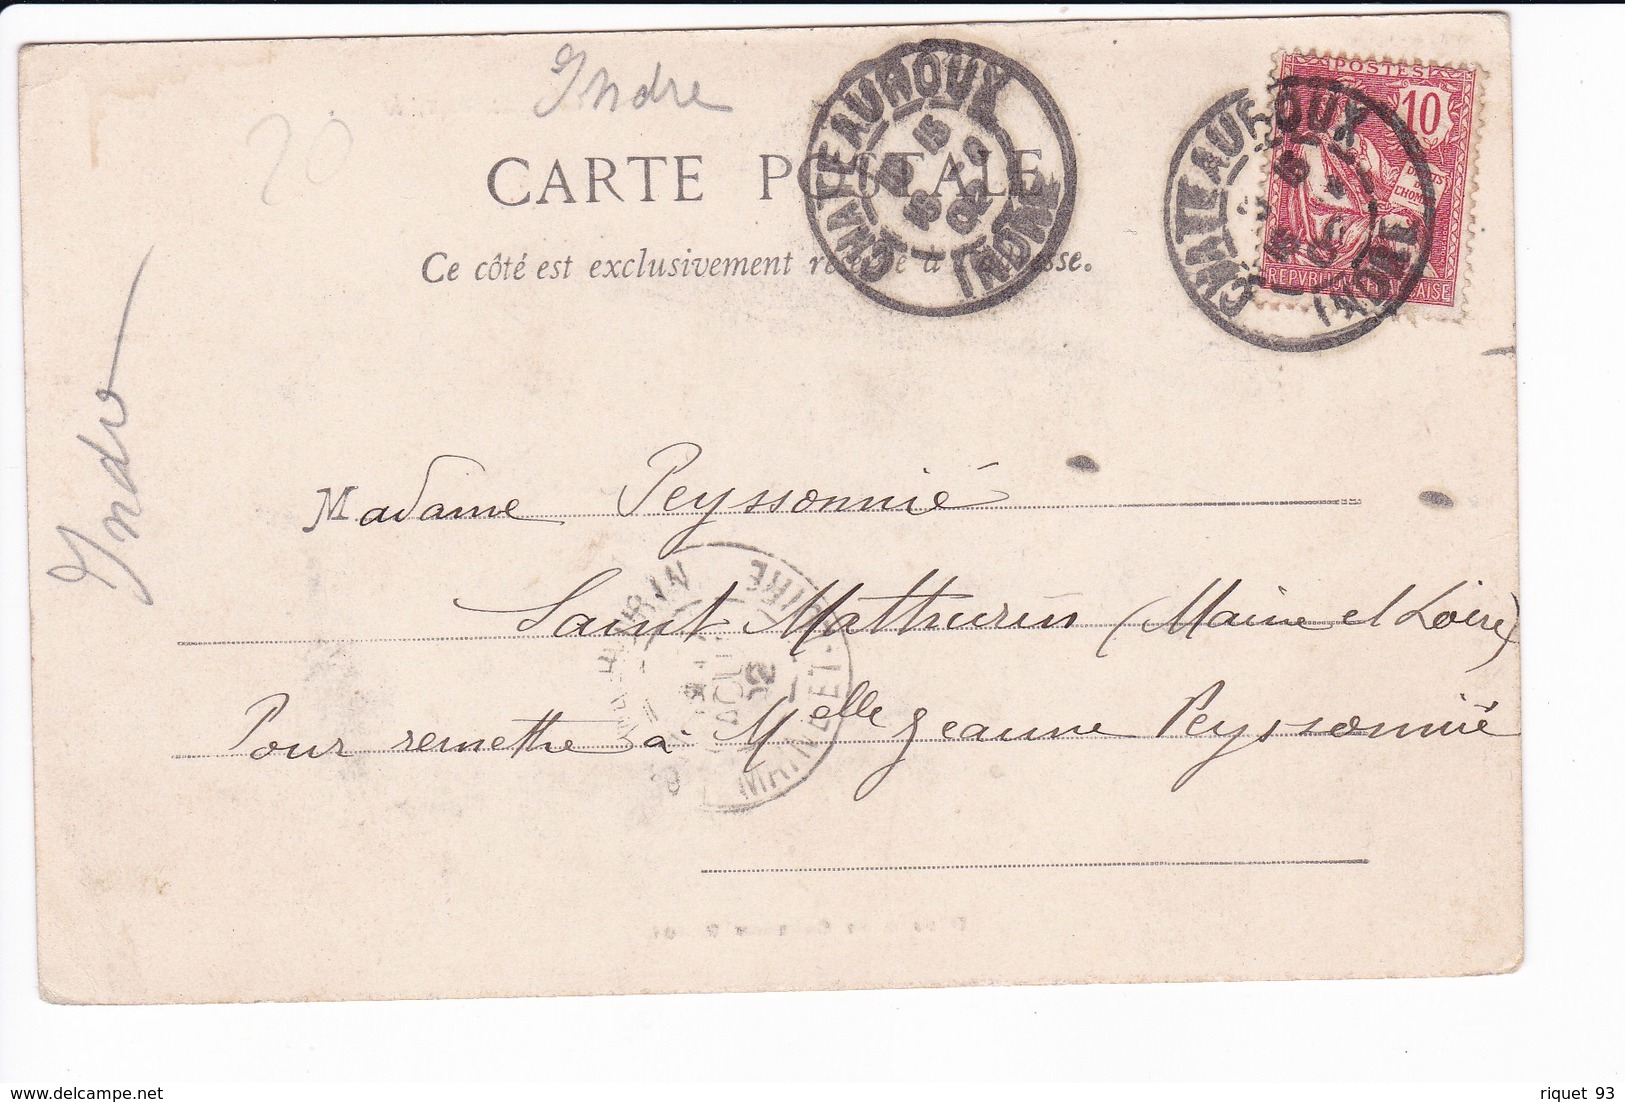 Indre
20
CARTE POSTALE
Ce côté est exclusivement réservé à l'adresse.
CHATEAUROUX
INDRE
POSTES
10
DROITS DE L'HOMME
REPVBLIQUE FRANÇAISE
CHATEAUROUX
INDRE
Indre
Madame Peyssonnié
Saint Mathurin (Maine et Loire)
Pour remettre à Melle Jeanne Peyssonnié
MAINE-ET-LOIRE
02
riquet 93